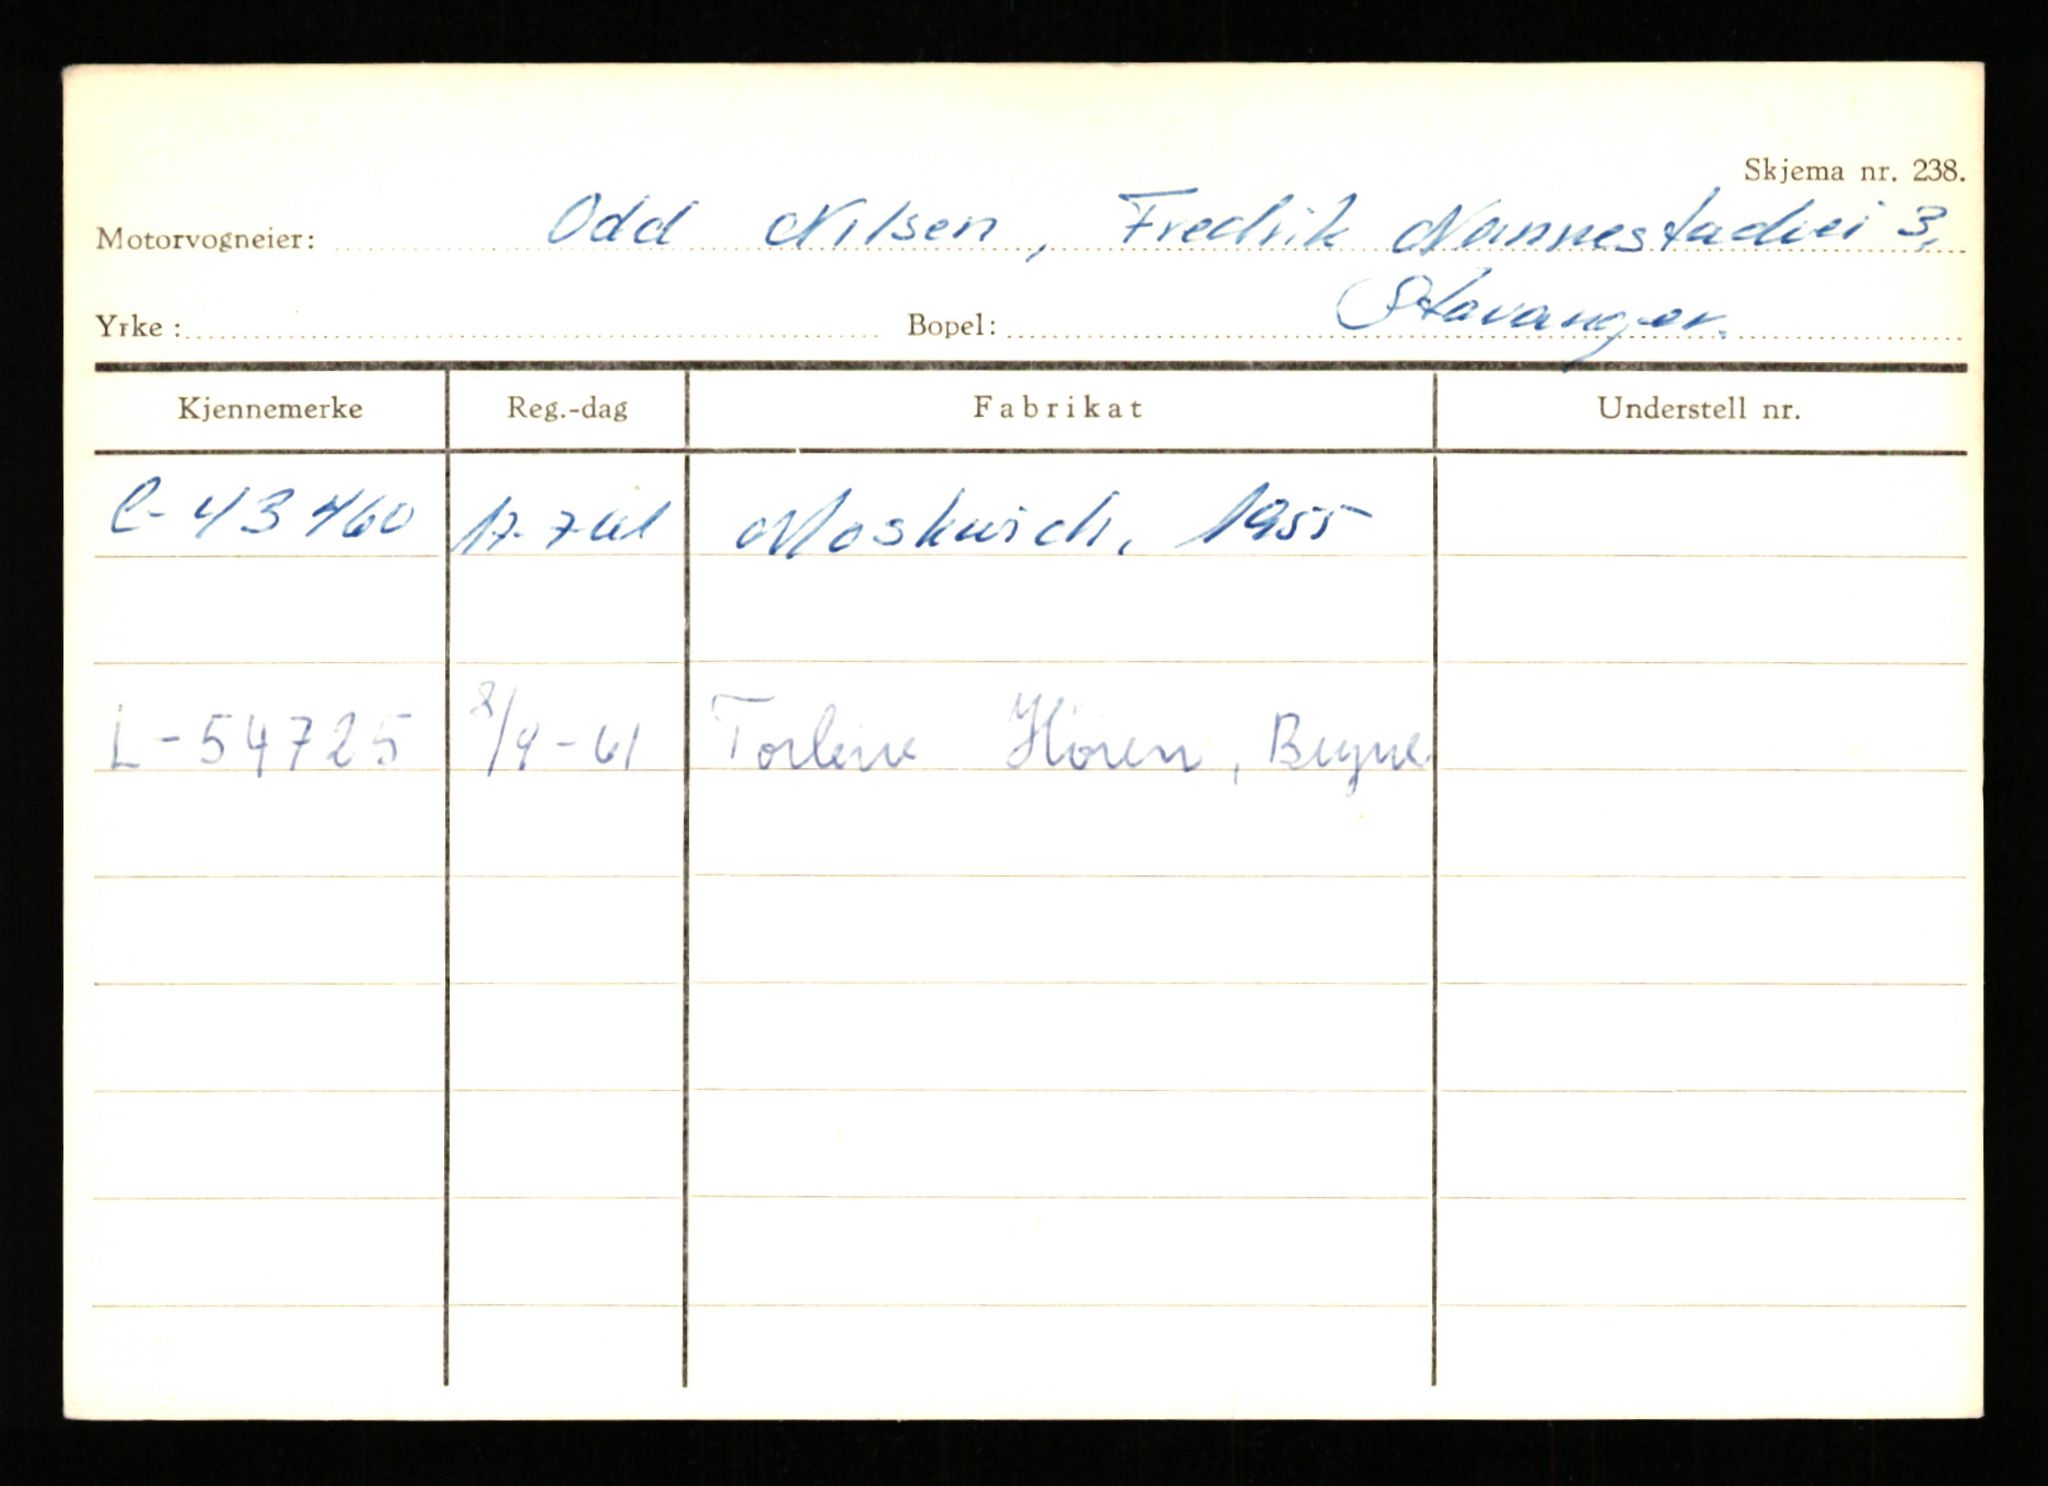 Skjema nr. 238.
Motorvogneier: Odd Nilsen, Fredrik Nannestadvei 3,
Stavanger.
Yrke: Bopel:
Kjennemerke Reg.-dag Fabrikat Understell nr.
L-43460 17-7-61 Moskwich, 1955
L-54725 8/9-61 Torleiv Hören, Bryne